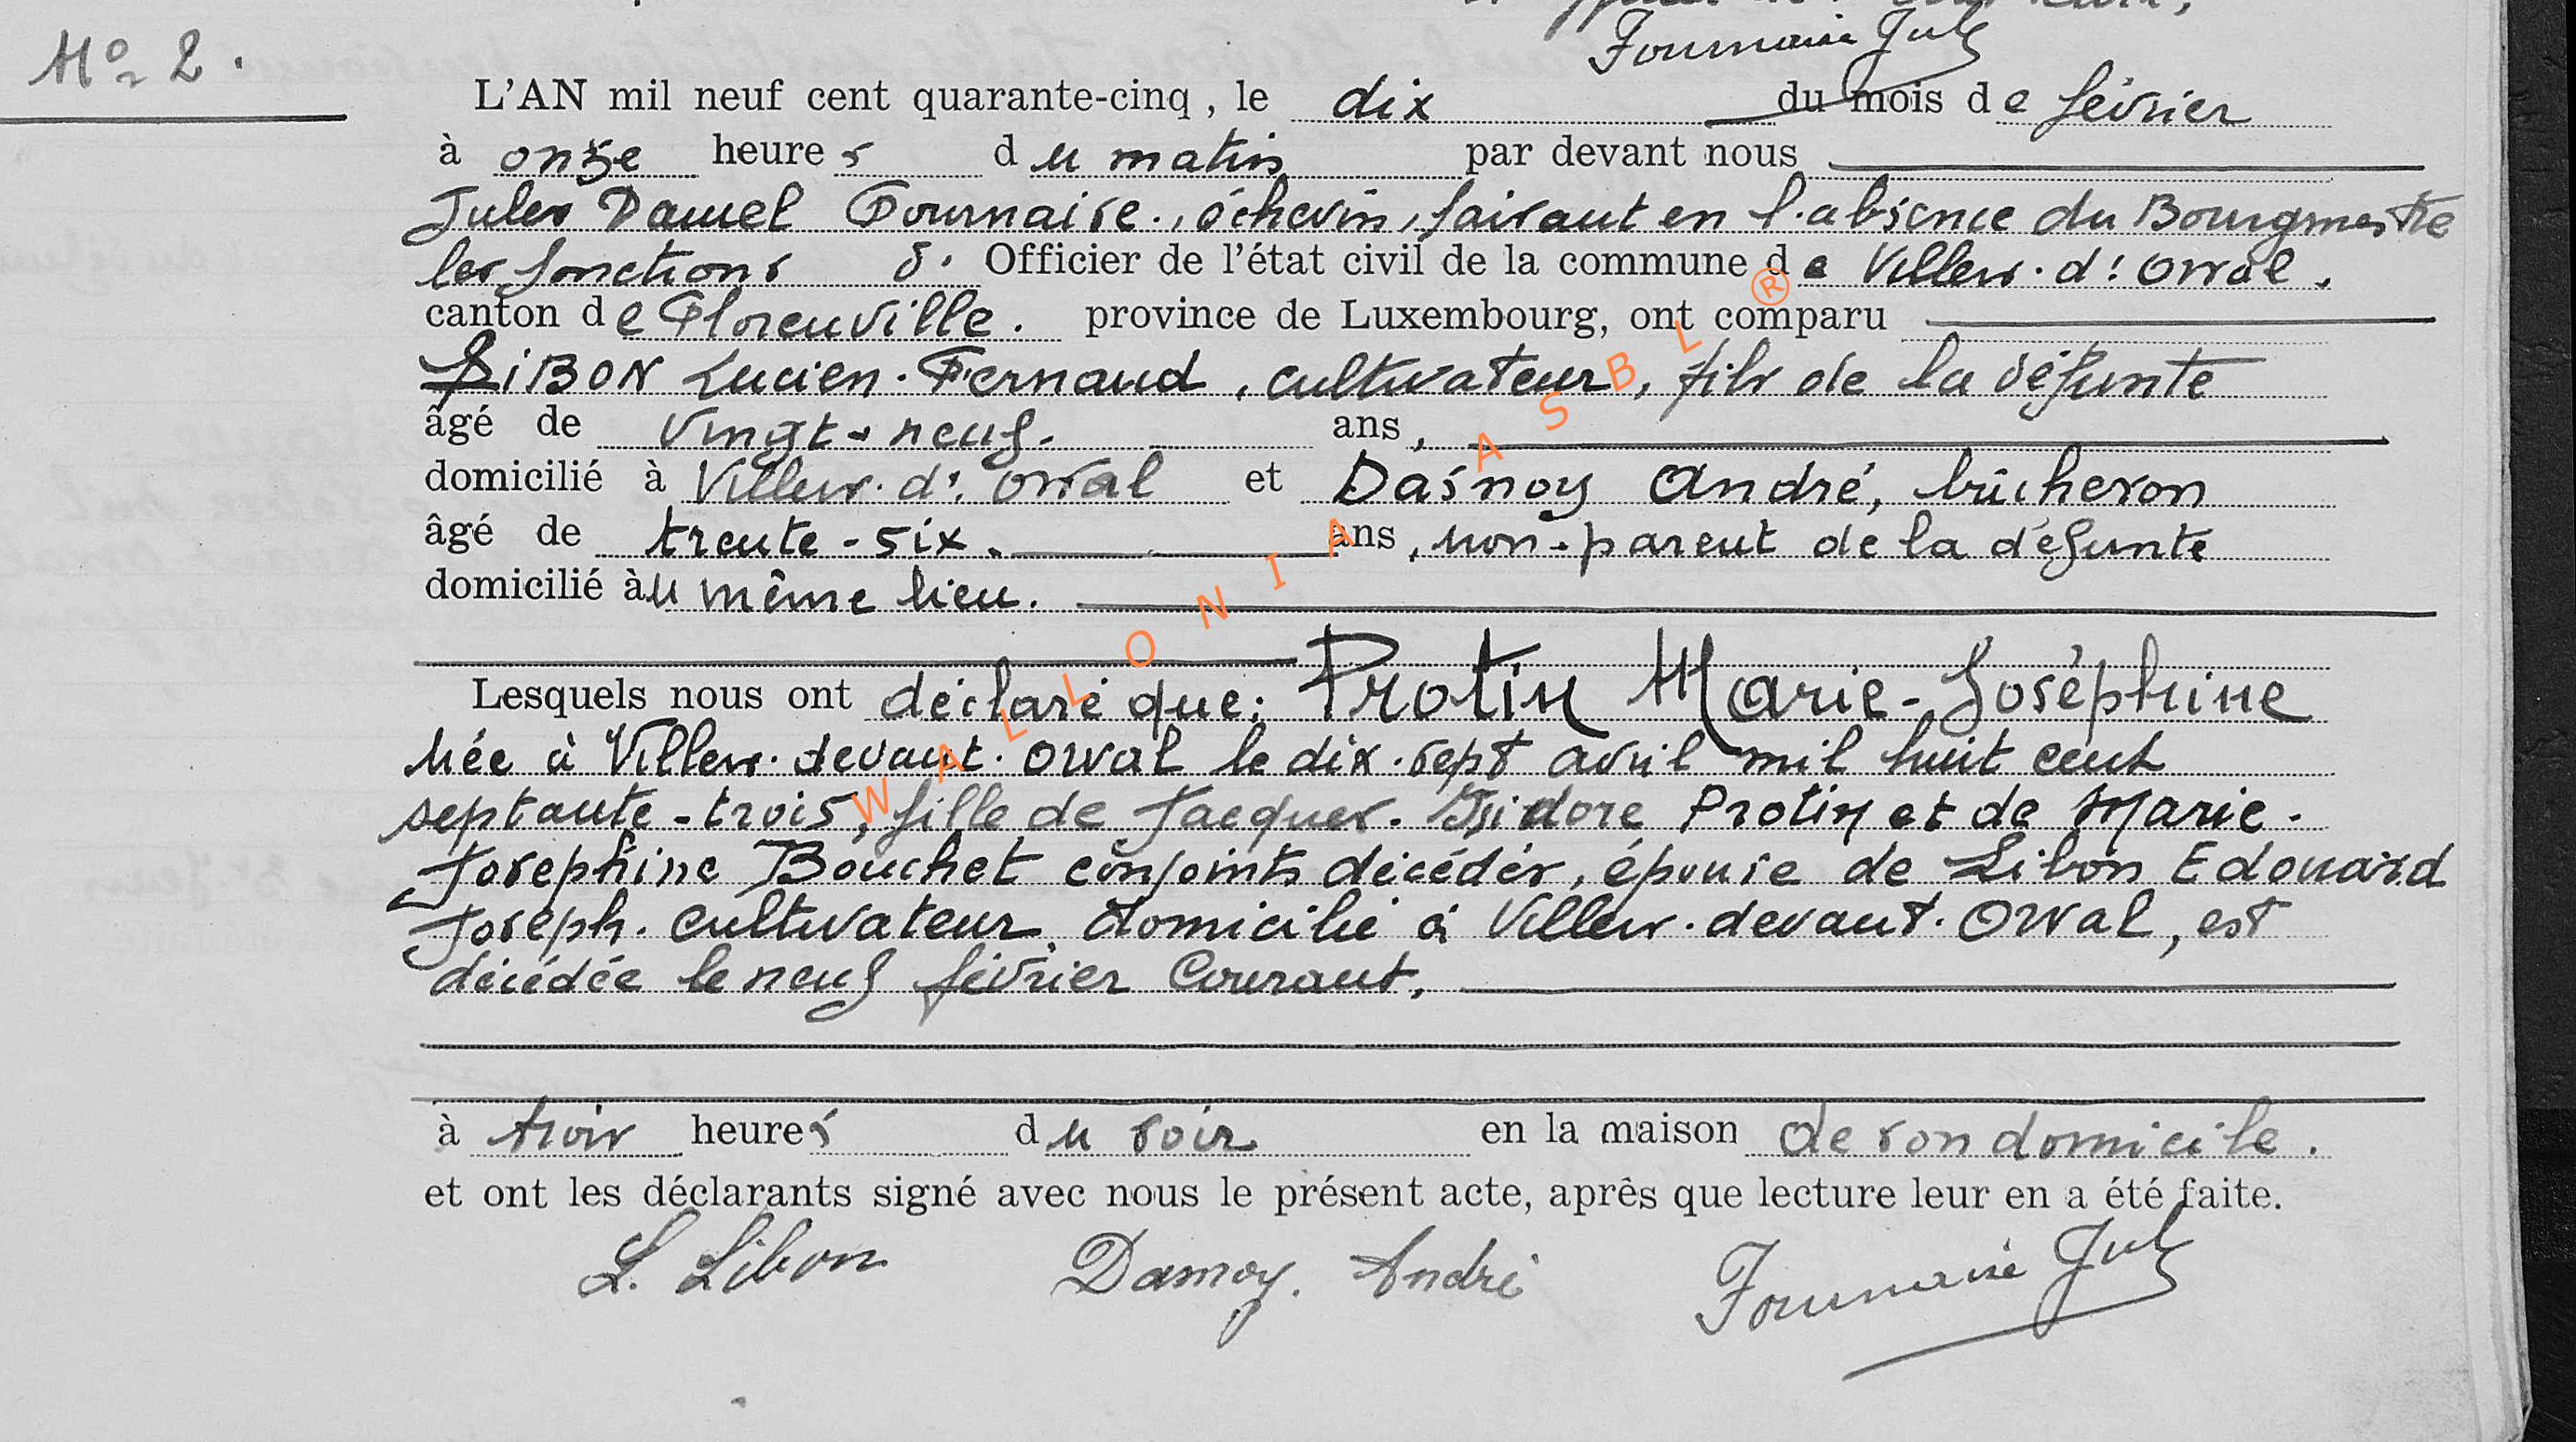 Fournaise Jul
Nº 2.
L'AN mil neuf cent quarante-cinq, le dix du mois de février
à onze heures du matin par devant nous
Jules Daniel Fournaise, échevin, faisant en l'absence du Bourgmestre
les fonctions d' Officier de l'état civil de la commune de Villers-d'Orval,
canton de Florenville. province de Luxembourg, ont comparu
LIBON Lucien-Fernand, cultivateur, fils de la défunte
âgé de vingt-neuf ans,
domicilié à Villers-d'Orval et Dasnoy André, bûcheron
âgé de trente-six ans, non-parent de la défunte
domicilié àu même lieu.
Lesquels nous ont déclaré que: Protin Marie-Joséphine
née à Villers-devant-Orval le dix-sept avril mil huit cent
septante-trois, fille de Jacques-Isidore Protin et de Marie-
Josephine Bouchet conjoints décédés, épouse de Libon Edouard
Joseph, cultivateur, domicilié à Villers-devant-Orval, est
décédée le neuf février courant,
à trois heures du soir en la maison de son domicile.
et ont les déclarants signé avec nous le présent acte, après que lecture leur en a été faite.
L. Libon Dasnoy. André Fournaise Jul
WALLONIA ASBL ®